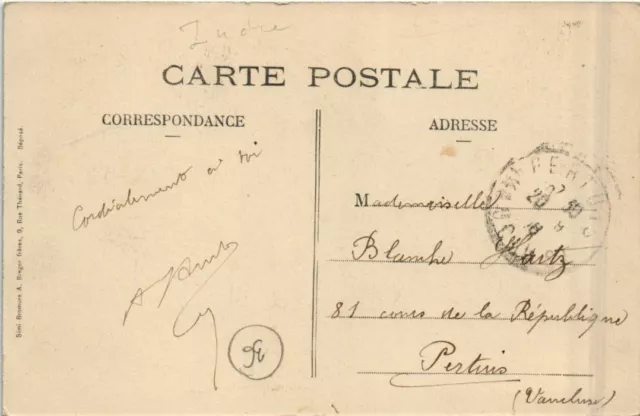 Indre
CARTE POSTALE
CORRESPONDANCE
ADRESSE
Cordialement à toi
Mademoiselle
Blanche Hartz
81 cours de la République
Pertuis
(Vaucluse)
PERTUIS
20
Simi-Bromure A. Breger frères, 9, Rue Thénard, Paris. Déposé.